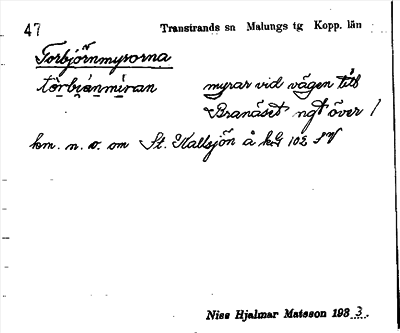 47 Transtrands sn Malungs tg Kopp. län
Torbjörnmyrorna
tòrbjánmíran myrar vid vägen till
Branäset ngt över 1
km. n. v. om St. Kallsjön å kG 102 SV
Nils Hjalmar Matsson 1933.